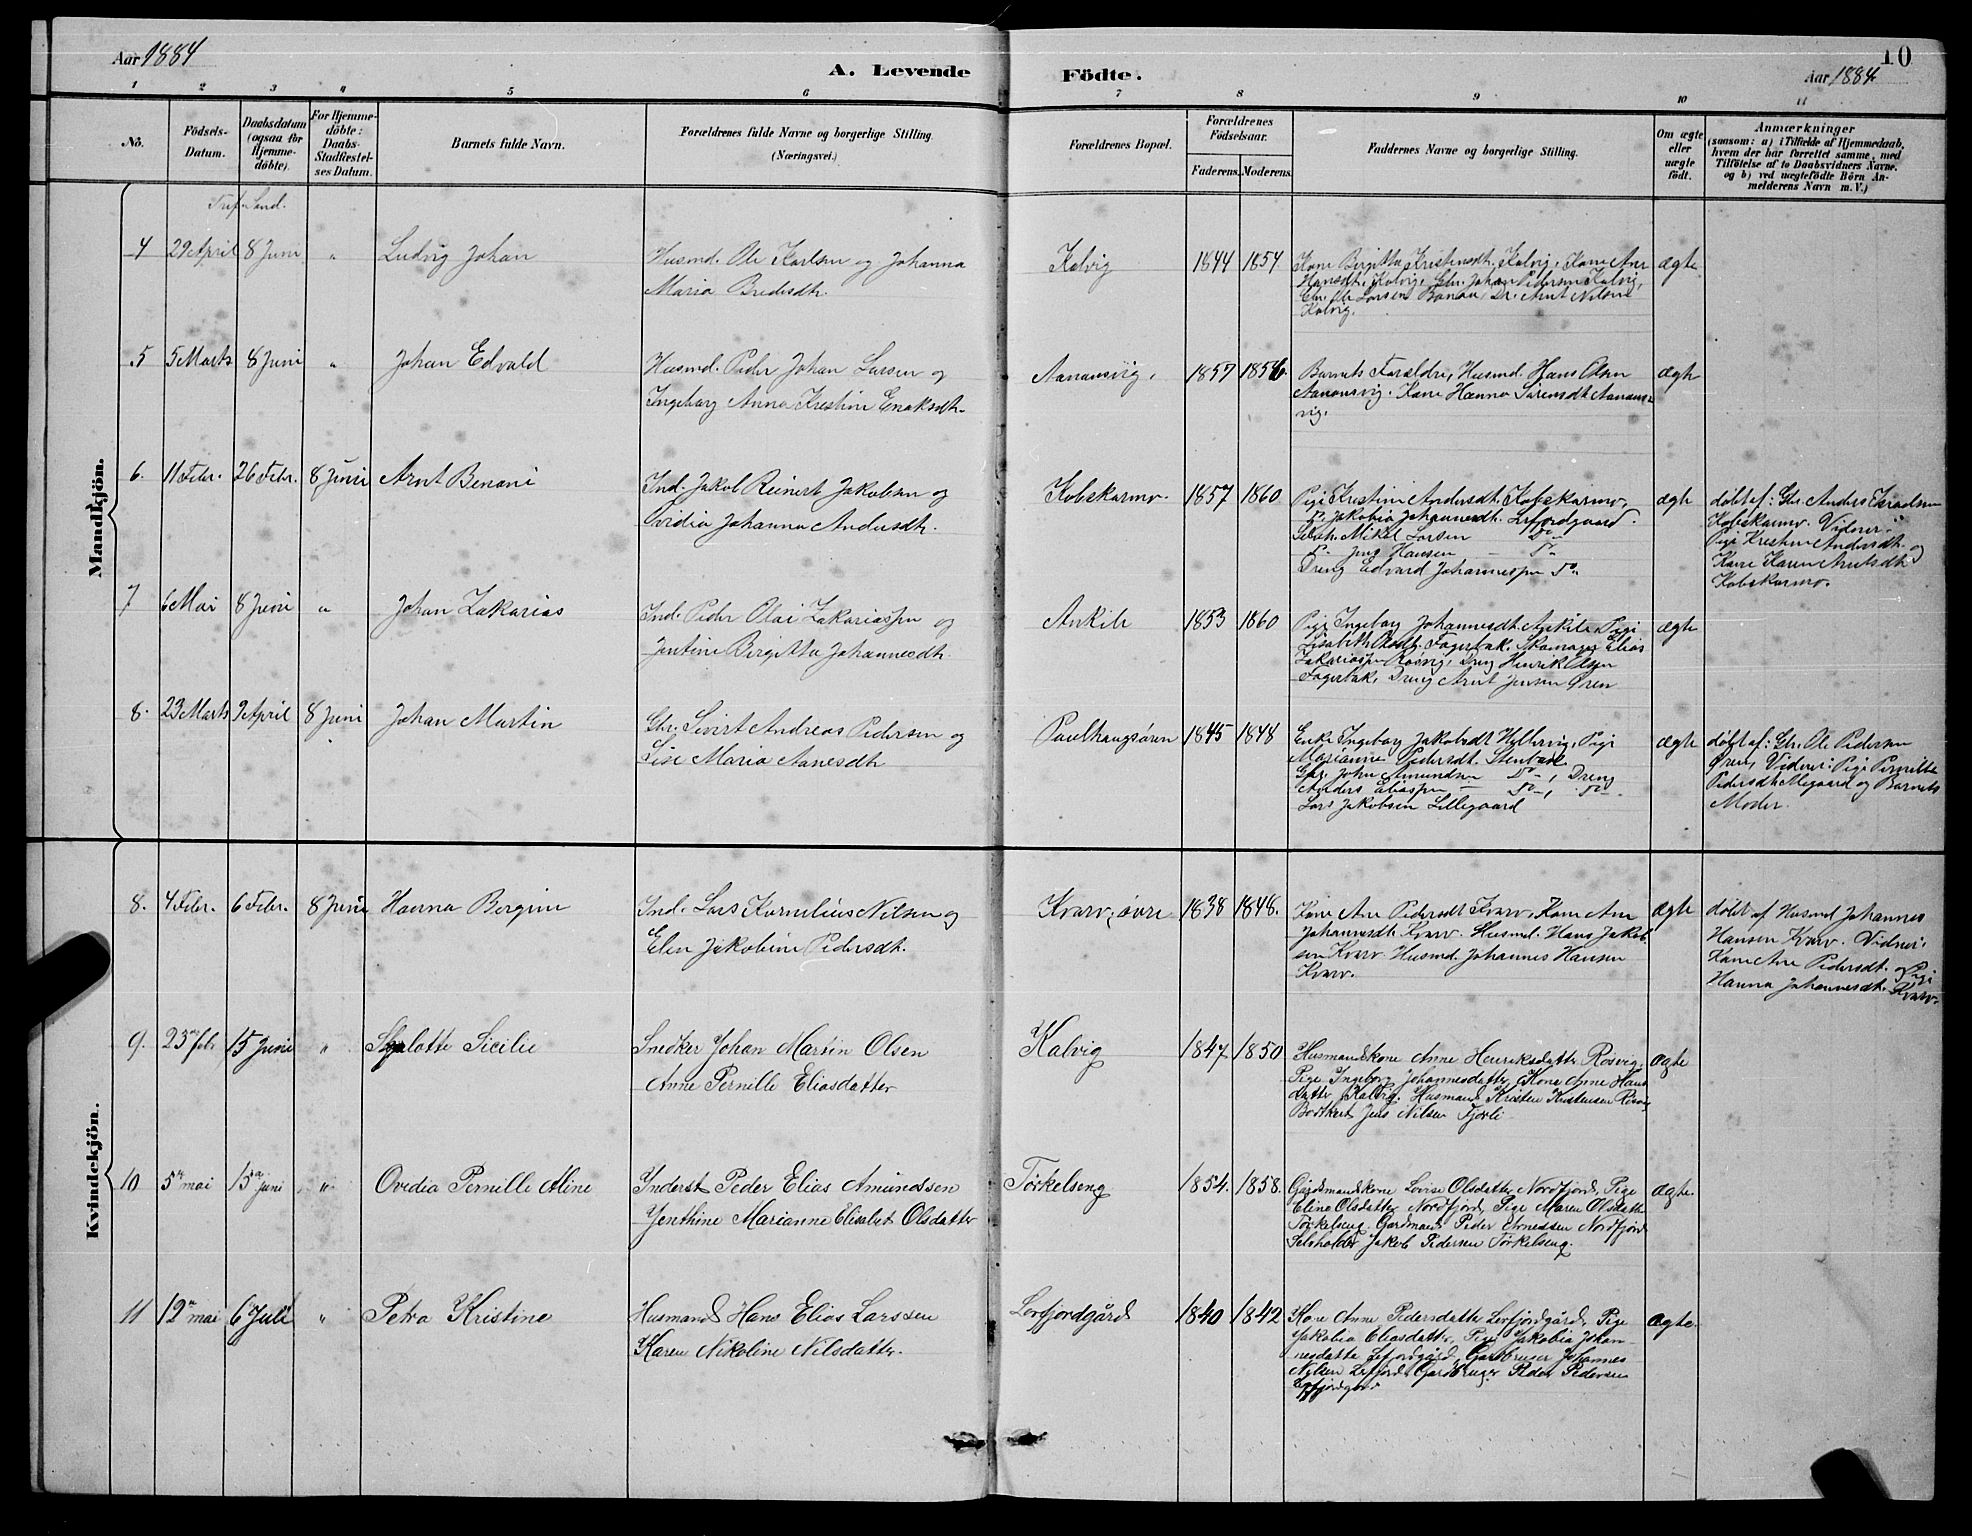 Aar 1884
A. Levende
Födte.
Aar 1884
10
1 2 3 4 5 6 7 8 9 10 11
No.
Födsels-
Datum.
Daabsdatum
(ogsaa for
Hjemme-
döbte).
For Hjemme-
döbte:
Daabs-
Stadfæstel-
ses Datum.
Barnets fulde Navn.
Forældrenes fulde Navne og borgerlige Stilling.
(Næringsvei.)
Forældrenes Bopæl.
Forældrenes
Födselsaar.
Faderens. Moderens.
Faddernes Navne og borgerlige Stilling.
Om ægte
eller
uægte
födt.
Anmærkninger
(saasom: a) i Tilfælde af Hjemmedaab,
hvem der har forrettet samme, med
Tilföielse af to Daabsvidners Navne.
og b) ved uægtefödte Börn An-
melderens Navn m. V.)
Mandkjön.
4 29 April 8 Juni " Ludvig Johan
Husmd. Ole Karlsen og Johanna
Maria
Kalvig 1844 1854
Kone Birgitta Kristensdt. Kalvig, Kone Ane
Hansdt. Kalvig, Gbr. Johan Pedersen Kalvig,
Gbr. Ole Larsen Dr. Arnt Nilsen
Kalvig.
ægte
5 5 Marts 8 Juni " Johan Edvald
Husmd. Peder Johan Larsen og
Ingeborg Anna Kristine Enoksdt.
Aanansvig. 1857 1856
Barnets Forældre, Husmd. Hans Olsen
Aanansvig. Kone Hanna Sørensdt. Aanans-
vig.
ægte
6. 11 Febr. 26 Febr. 8 Juni Arnt Benoni
Ind. Jakob Reinert Jakobsen og
Ovidia Johanna Andersdt.
Kobskarmo. 1857 1860
Pige Kristine Andersdt. Kobskarmo,
Do Jakobia Johannesdt. Lefjordgaard.
Mikel Larsen Do
Do Jens Hansen - Do
Dreng Edvard Johannessen Do
ægte
døbt af: Gbr. Anders Esraelsen
Kobskarmo. Vidner:
Pige Kristine Andersdt. og
Kone Karen Arntsdt.
Kobskarmo.
7 6 Mai 8 Juni " Johan Zakarias
Ind. Peder Olai Zakariassen og
Jentine Birgitta Johannesdt.
Ankile 1853 1860
Pige Ingeborg Johannesdt. Ankile, Pige
Lisabeth Fagerbak, Elias
Zakariassen Røsvig, Dreng Henrik Olsen
Fagerbak, Dreng Arnt Jensen Øren
ægte
8. 23 Marts 9 April 8 Juni Johan Martin
Gbr. Sivert Andreas Pedersen og
Lise Maria Aanesdt.
Paulhaugsøren 1845 1848
Enke Ingeborg Jakobsdt. Pige
Marianne Pedersdt. Stenbak
Gbr. John Amundsen Do -, Dreng
Anders Eliassen - Do -, Do -
Lars Jakobsen Lillegaard
ægte
døbt af: Gbr. Ole Pedersen
Øren, Vidner: Pige Pernille
Pedersdt. og Barnets
Moder.
Kvindekjön.
8. 4 Febr. 6 Febr. 8 Juni Hanna Bergine
Ind. Lars Kornelius Nilsen og
Elen Jakobine Pedersdt.
Kvarv, øvre 1838 1848.
Kone Ane Pedersdt. Kvarv, Kone Ane
Johannesdt. Kvarv. Husmd. Hans Jakob-
sen Kvarv. Husmd. Johannes Hansen
Kvarv.
ægte
døbt af Husmd Johannes
Hansen Kvarv. Vidner:
Kone Ane Pedersdt. og Pige
Hanna Johannesdt. Kvarv.
9. 23 febr 15 Juni " Sjalotte Sicilie
Snedker Johan Martin Olsen
Anne Pernille Eliasdatter
Kalvig 1847 1850
Husmandskone Anne Henriksdatter Røsvig,
Pige Ingeborg Johannesdatter, Kone Anne Hans
datter Kalvig. Husmand Kristen Kristensen
Jens Nilsen Fjorli
ægte
10 5 mai 15 Juni " Ovedia Pernille Aline
Inderst Peder Elias Amundssen
Jenthine Marianne Elisabet Olsdatter
Törkelseng 1854. 1858.
Gårdmandskone Lovise Olsdatter Nordfjord, Pige
Elina Olsdatter Nordfjord, Pige Maren Olsdatter
Törkelseng. Gardmand Peder Arnessen Nordfjord
Selvholder Jakob Pedersen Törkelseng.
ægte.
11 12 mai 6 Juli " Petra Kristine
Husmand Hans Elias Larssen
Karen Nikoline Nilsdatter.
Levfjordgård 1840 1842
Kone Anne Pedersdatter Levfjordgård, Pige
Jakobia Eliasdatter, Pige Jakobia Johan-
nesdatter Lefjordgård, Gardbruger Johannes
Nilsen Lefjord, Gardbruger Peder Pedersen
Lefjordgard
ægte.